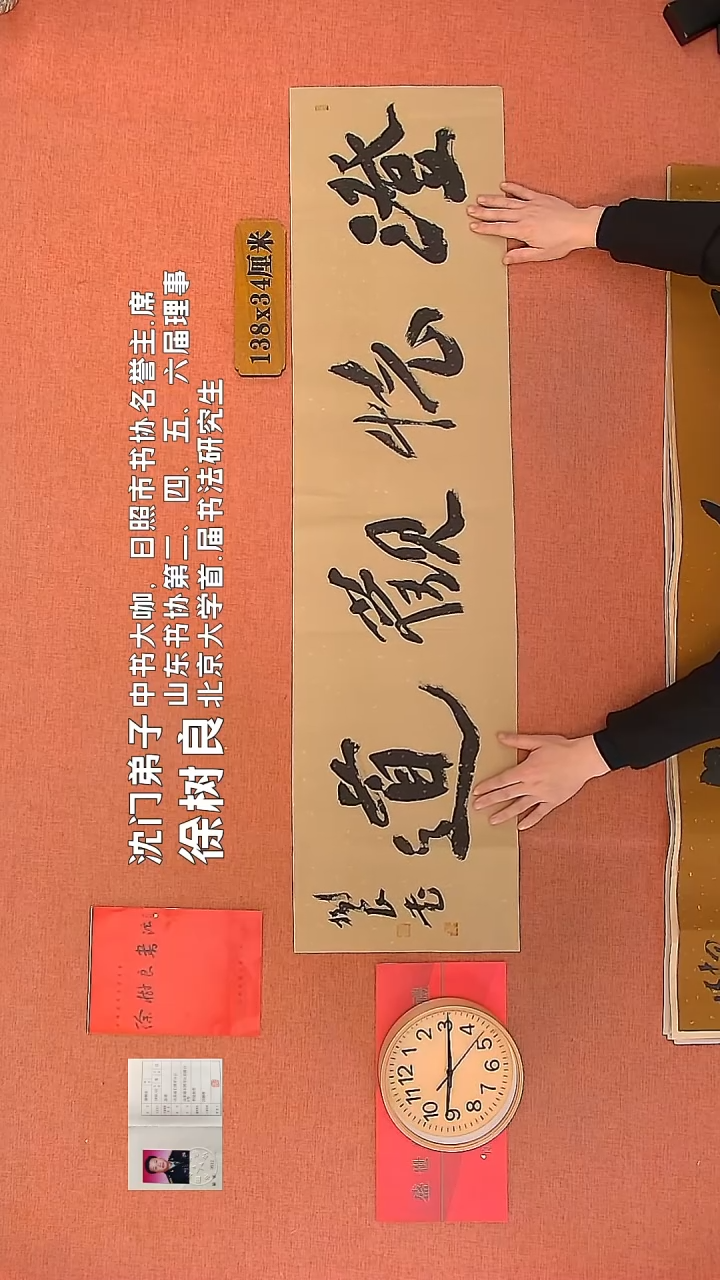 沈门弟子
徐树良
中书大咖，日照市书协名誉主.席
山东书协第三、四、五、六届理事
北京大学首.届书法研究生
138x34厘米
澄懷觀道
树良书
徐树良书法
盛世
12
1
2
3
4
5
6
7
8
9
10
11